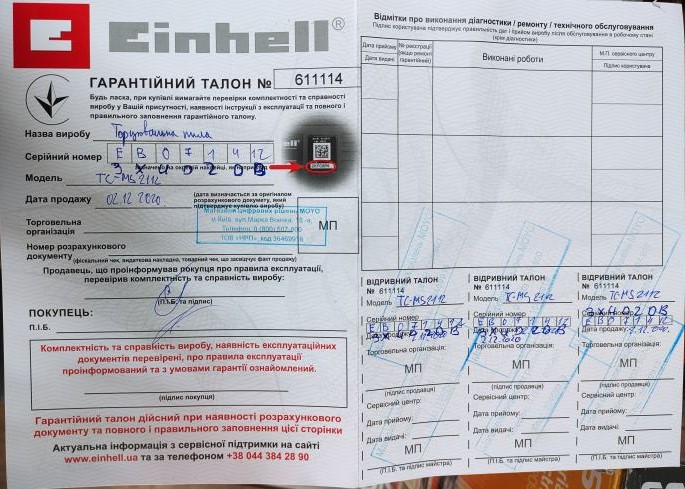 Einhell®
ГАРАНТІЙНИЙ ТАЛОН № 611114
Будь ласка, при купівлі вимагайте перевірки комплектності та справності
виробу у Вашій присутності, наявності інструкції з експлуатації та повного і
правильного заповнення гарантійного талону.
Назва виробу Торцювальна пила
Серійний номер E B 0 7 1 4 12
3 x 4 0 2 0 B
Модель TC-MS 2112
Дата продажу 02.12.2020
(дата визначається за оригіналом
розрахункового документу, який
підтверджує купівлю виробу)
Торговельна
організація
Магазини Цифрових рішень MOYO
Телефон: 0 (800) 507-800
МП
Номер розрахункового
документу
(фіскальний чек, видаткова накладна, товарний чек, що засвідчує факт продажу)
Продавець, що проінформував покупця про правила експлуатації,
перевірив комплектність та справність виробу:
(П.І.Б. та підпис)
ПОКУПЕЦЬ:
П.І.Б.
Комплектність та справність виробу, наявність експлуатаційних
документів перевірені, про правила експлуатації
проінформований та з умовами гарантії ознайомлений.
(підпис покупця)
Гарантійний талон дійсний при наявності розрахункового
документу та повного і правильного заповнення цієї сторінки
Актуальна інформація з сервісної підтримки на сайті
www.einhell.ua та за телефоном +38 044 384 28 90
Відмітки про виконання діагностики / ремонту / технічного обслуговування
Підпис користувача підтверджує правильність дат і прийом виробу після обслуговування в робочому стані
(крім діагностики)
Дата прийому
Дата видачі
№ реєстрації
(якщо ремонт
гарантійний)
Виконані роботи
М.П. сервісного центру
Підпис користувача
ВІДРИВНИЙ ТАЛОН
№ 611114
Модель TC-MS 2112
Серійний номер
E B 0 7 1 4 12
3 x 4 0 2 0 B
Дата продажу
Торговельна організація:
МП
(підпис продавця)
Сервісний центр:
Дата прийому:
Дата видачі:
МП
(П.І.Б. та підпис майстра)
ВІДРИВНИЙ ТАЛОН
№ 611114
Модель TC-MS 2112
Серійний номер
E B 0 7 1 4 12
Дата продажу
2.12.2020
Торговельна організація:
МП
(підпис продавця)
Сервісний центр:
Дата прийому:
Дата видачі:
МП
(П.І.Б. та підпис майстра)
ВІДРИВНИЙ ТАЛОН
№ 611114
Модель TC-MS 2112
3 x 4 0 2 0 B
E B 0 7 1 4 12
Дата продажу
Торговельна організація:
МП
(підпис продавця)
Сервісний центр:
Дата прийому:
Дата видачі:
МП
(П.І.Б. та підпис майстра)